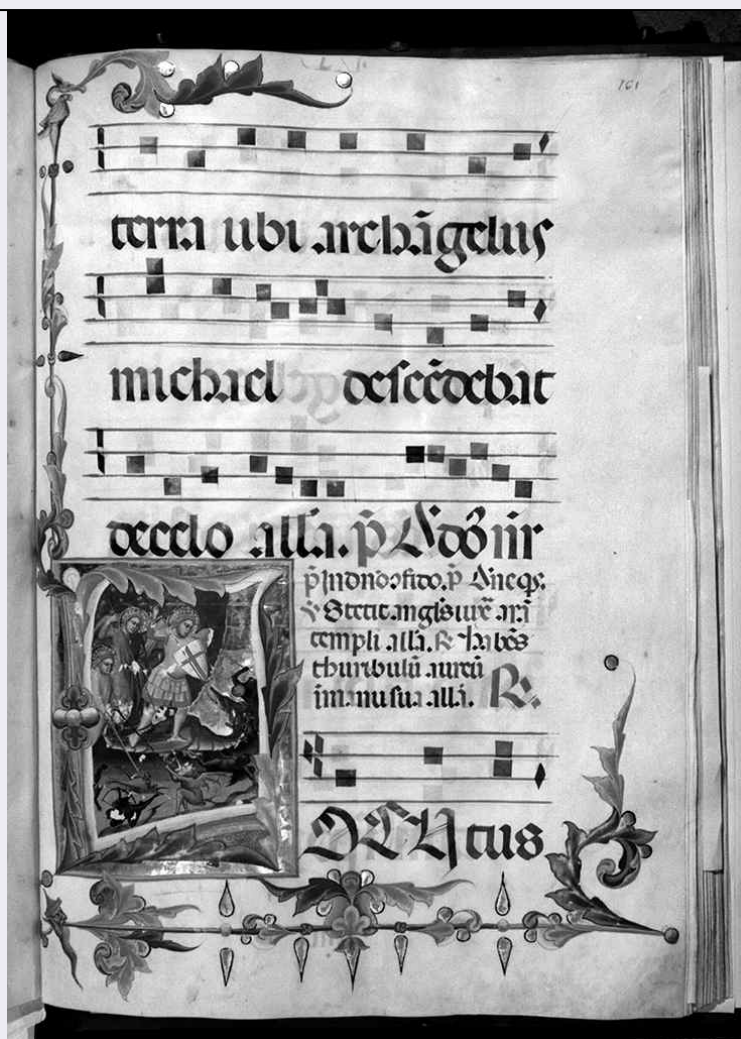 161
terra ubi archãgelus
michael descẽdebat
decelo alla. p̃ A doẽ nr̃
p̃ In dn̄o cõfido. p̃ Dñe qs.
℣ Stetit angłs iuxª arã
templi alla. ℟ habẽs
thuribulũ aureũ
ĩ manu sua allã. ℟.
actus